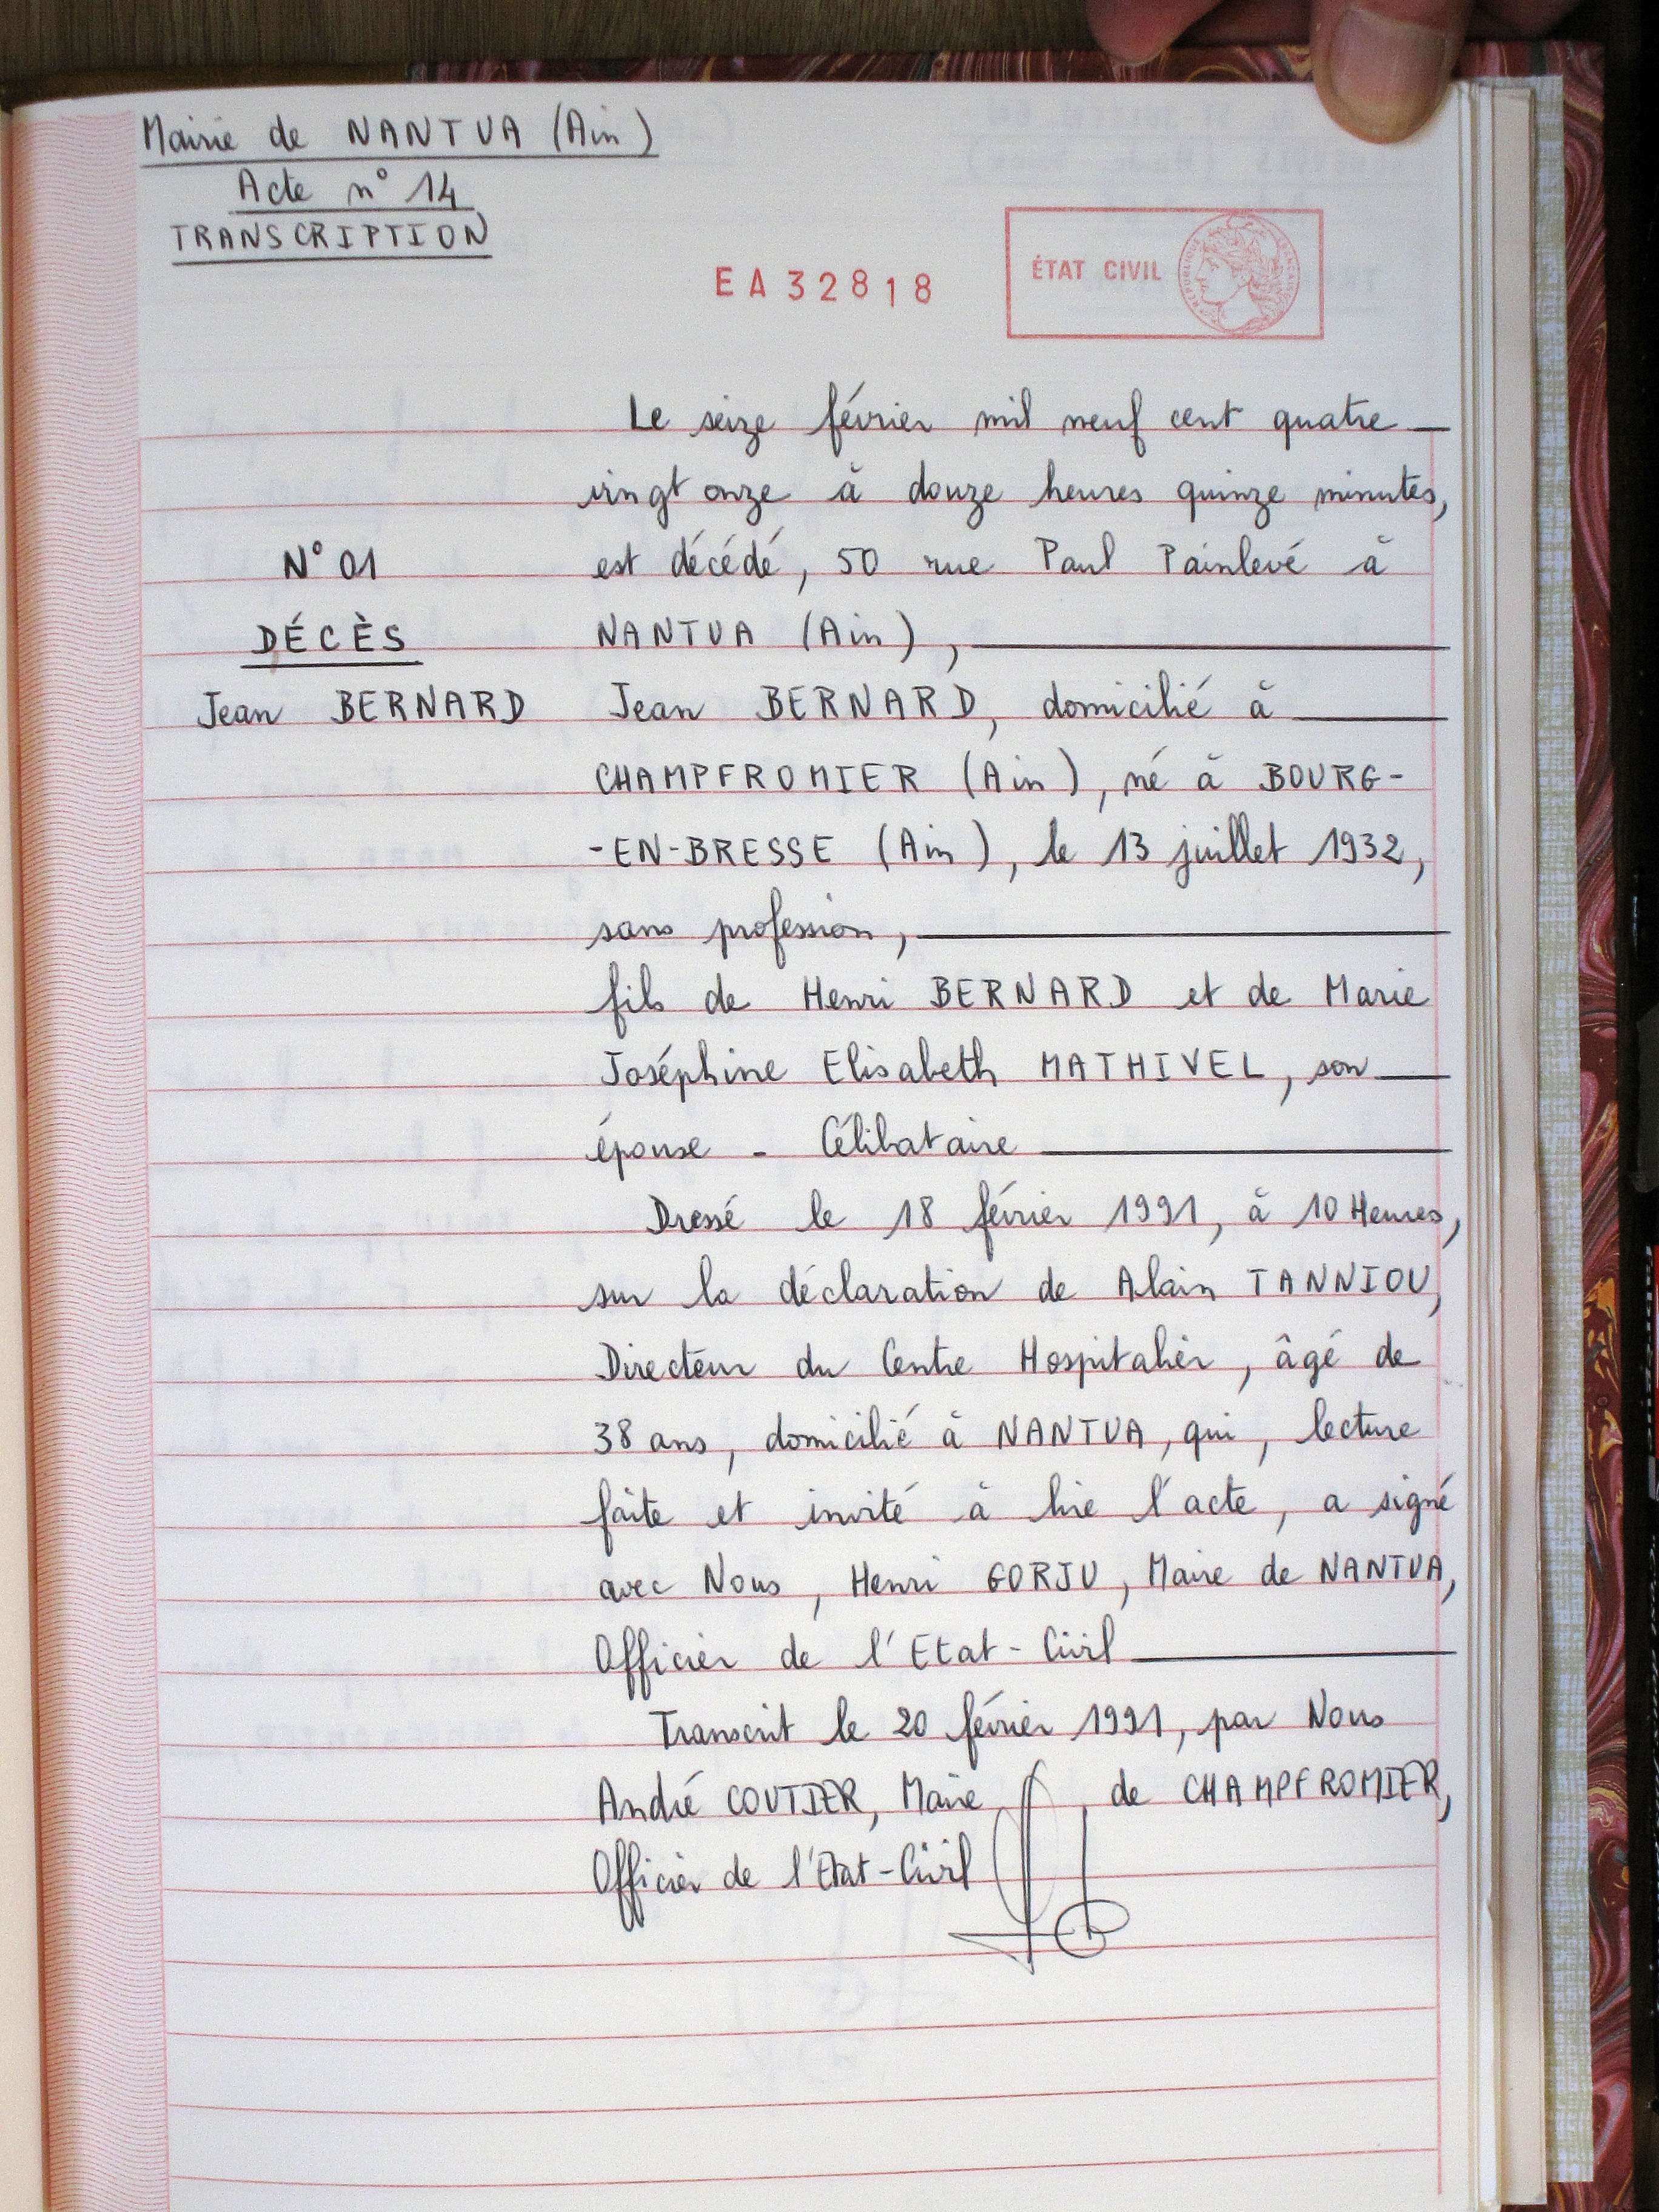 Mairie de NANTUA (Ain)
Acte n° 14
TRANSCRIPTION
EA32818
ÉTAT CIVIL
RÉPUBLIQUE FRANÇAISE
Le seize février mil neuf cent quatre
vingt onze à douze heures quinze minutes,
N° 01
est décédé, 50 rue Paul Painlevé à
DÉCÈS
NANTUA (Ain),
Jean BERNARD
Jean BERNARD, domicilié à
CHAMPFROMIER (Ain), né à BOURG-
-EN-BRESSE (Ain), le 13 juillet 1932,
sans profession,
fils de Henri BERNARD et de Marie
Joséphine Elisabeth MATHIVEL, son
épouse - Célibataire
Dressé le 18 février 1991, à 10 Heures,
sur la déclaration de Alain TANNIOU,
Directeur du Centre Hospitalier, âgé de
38 ans, domicilié à NANTUA, qui, lecture
faite et invité à lire l'acte, a signé
avec Nous, Henri GORJU, Maire de NANTUA,
Officier de l'Etat-Civil
Transcrit le 20 février 1991, par Nous
André COUTIER, Maire de CHAMPFROMIER,
Officier de l'Etat-Civil